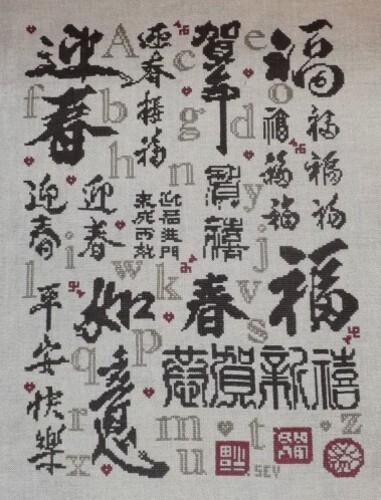 迎春
迎春接福
賀年
福
福福福福福
迎春
迎春
賀禧
迎福進門
萬
平安快樂
如意
春
福
恭賀新禧
A c e
f b g o
h n d
i y j
l w k v
q p s
r x m u t z
SEY